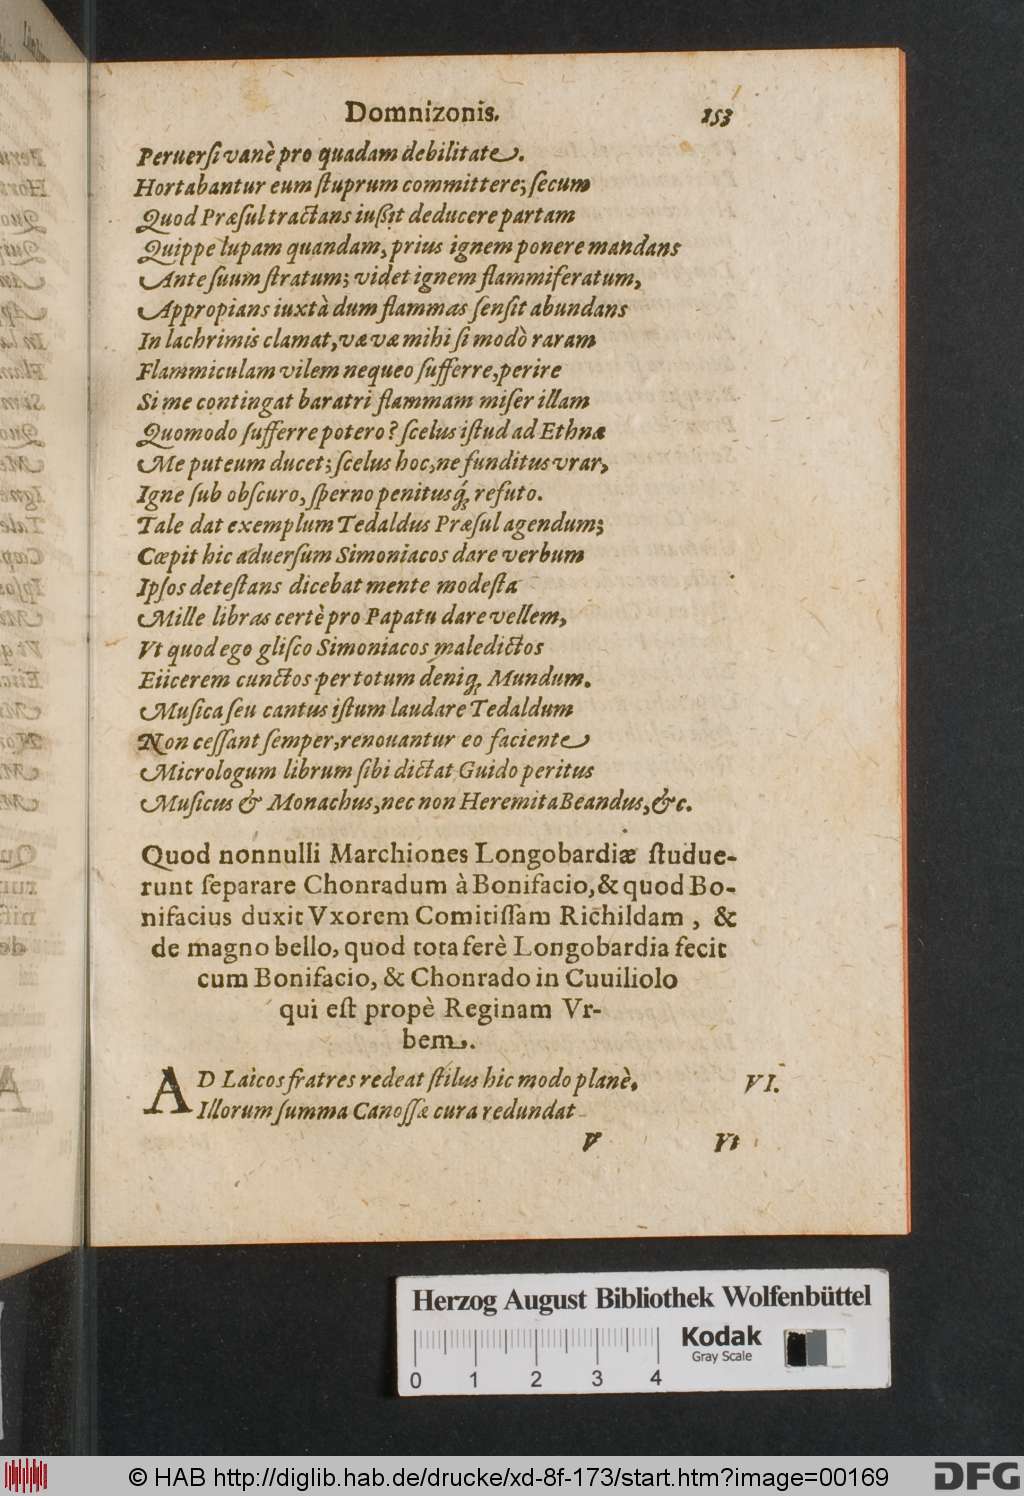 Domnizonis. 153
Peruerſi vanè pro quadam debilitate.
Hortabantur eum ſtuprum committere; ſecum
Quod Præſul tractans iußit deducere partam
Quippe lupam quandam, prius ignem ponere mandans
Ante ſuum ſtratum; videt ignem flammiferatum,
Appropians iuxtà dum flammas ſenſit abundans
In lachrimis clamat, væ væ mihi ſi modò raram
Flammiculam vilem nequeo ſufferre, perire
Si me contingat baratri flammam miſer illam
Quomodo ſufferre potero? ſcelus iſtud ad Ethnæ
Me puteum ducet; ſcelus hoc, ne funditus vrar,
Igne ſub obſcuro, ſperno penitusq́; refuto.
Tale dat exemplum Tedaldus Præſul agendum;
Cœpit hic aduerſum Simoniacos dare verbum
Ipſos deteſtans dicebat mente modeſta
Mille libras certè pro Papatu dare vellem,
Vt quod ego gliſco Simoniacos maledictos
Eiicerem cunctos per totum déniq; Mundum.
Muſica ſeu cantus iſtum laudare Tedaldum
Non ceſſant ſemper, renouantur eo faciente
Micrologum librum ſibi dictat Guido peritus
Muſicus & Monachus, nec non Heremita Beandus, &c.
Quod nonnulli Marchiones Longobardiæ ſtudue-
runt ſeparare Chonradum à Bonifacio, & quod Bo-
nifacius duxit Vxorem Comitiſſam Richildam, &
de magno bello, quod tota ferè Longobardia fecit
cum Bonifacio, & Chonrado in Cuuiliolo
qui eſt propè Reginam Vr-
bem.
AD Laicos fratres redeat ſtilus hic modo planè, VI.
Illorum ſumma Canoſſæ cura redundat
V Vt
Herzog August Bibliothek Wolfenbüttel
Kodak
Gray Scale
0 1 2 3 4
© HAB http://diglib.hab.de/drucke/xd-8f-173/start.htm?image=00169 DFG